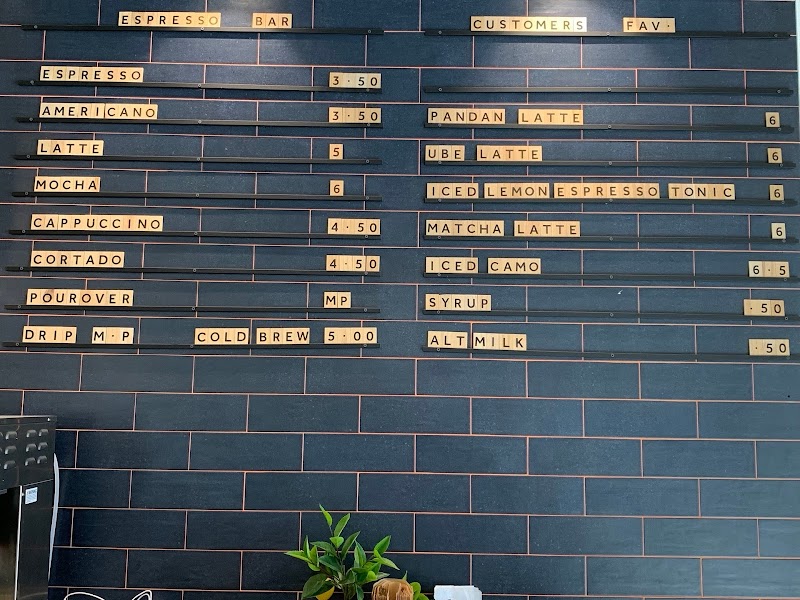 ESPRESSO BAR
ESPRESSO 3·50
AMERICANO 3·50
LATTE 5
MOCHA 6
CAPPUCCINO 4·50
CORTADO 4·50
POUROVER MP
DRIP M·P COLD BREW 5·00
CUSTOMERS FAV·
PANDAN LATTE 6
UBE LATTE 6
ICED LEMON ESPRESSO TONIC 6
MATCHA LATTE 6
ICED CAMO 6·5
SYRUP ·50
ALT MILK ·50